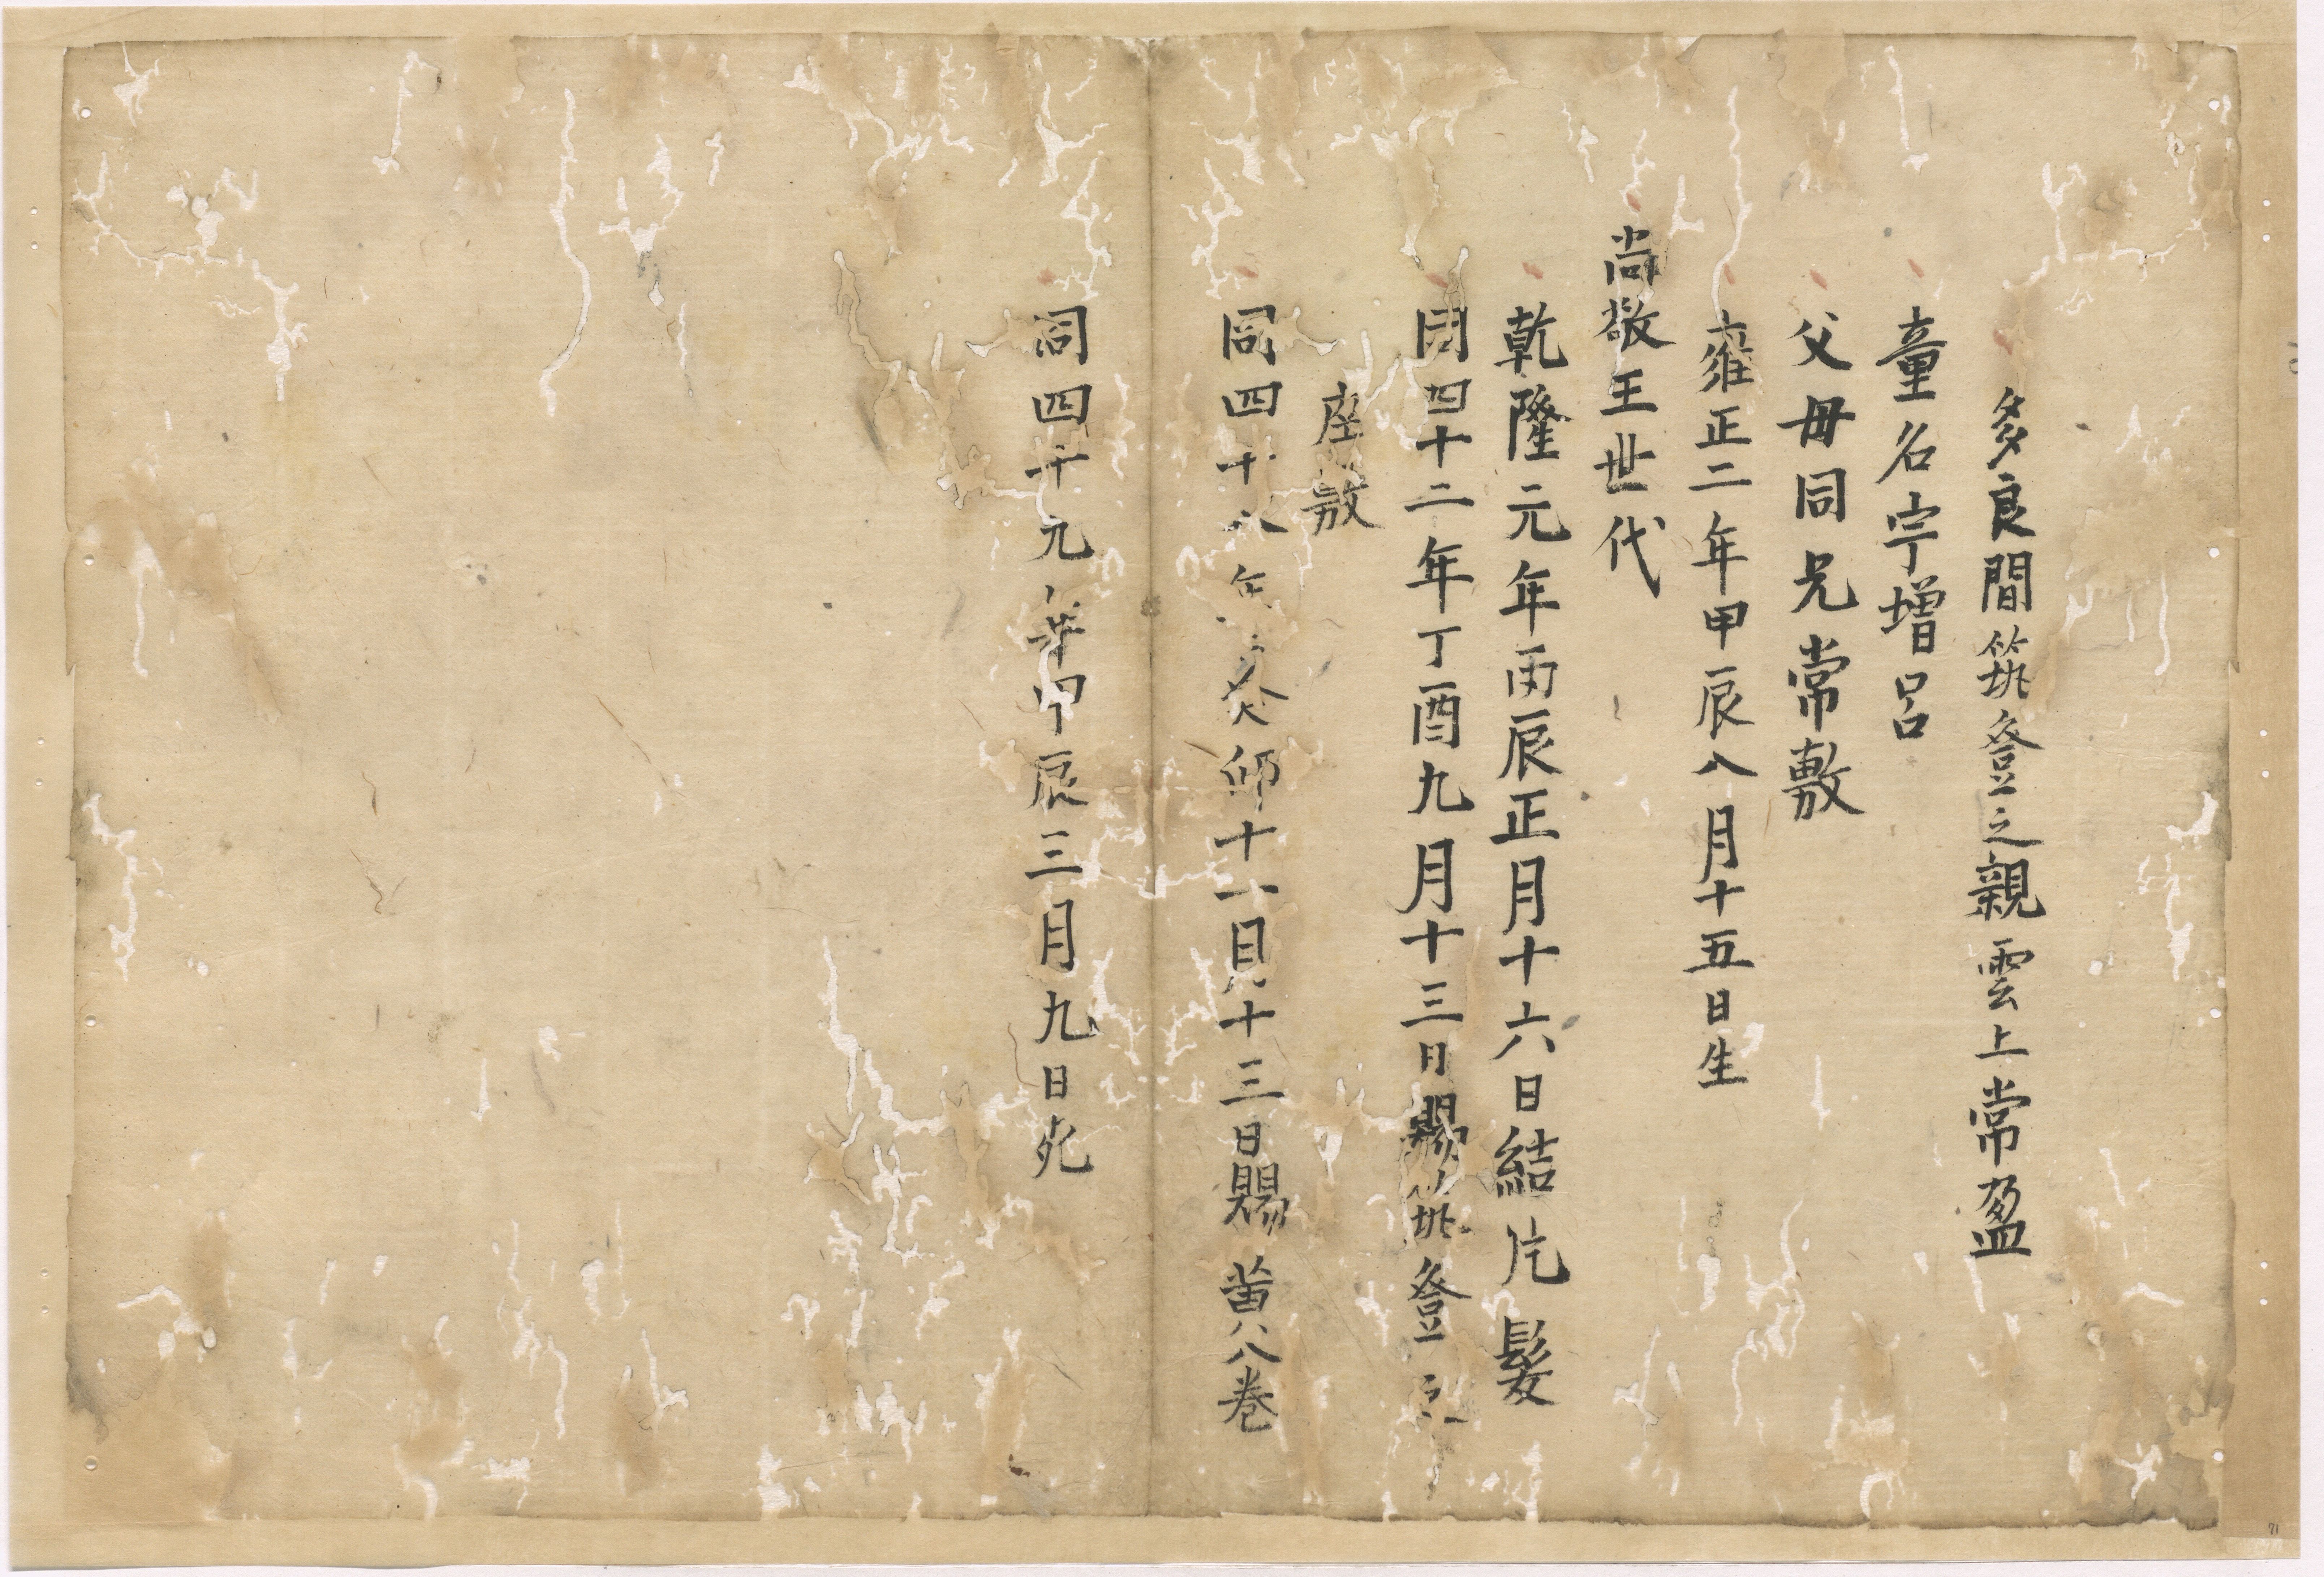 多良間筑登之親雲上常盈
童名宇增呂
父毋同兄常敷
雍正二年甲辰八月十五日生
尚敬王世代
乾隆元年丙辰正月十六日結片髮
同四十二年丁酉九月十三日賜筑登之
座敷
同四十八年癸卯十一月十三日賜黄八巻
同四十九年甲辰三月九日死
71